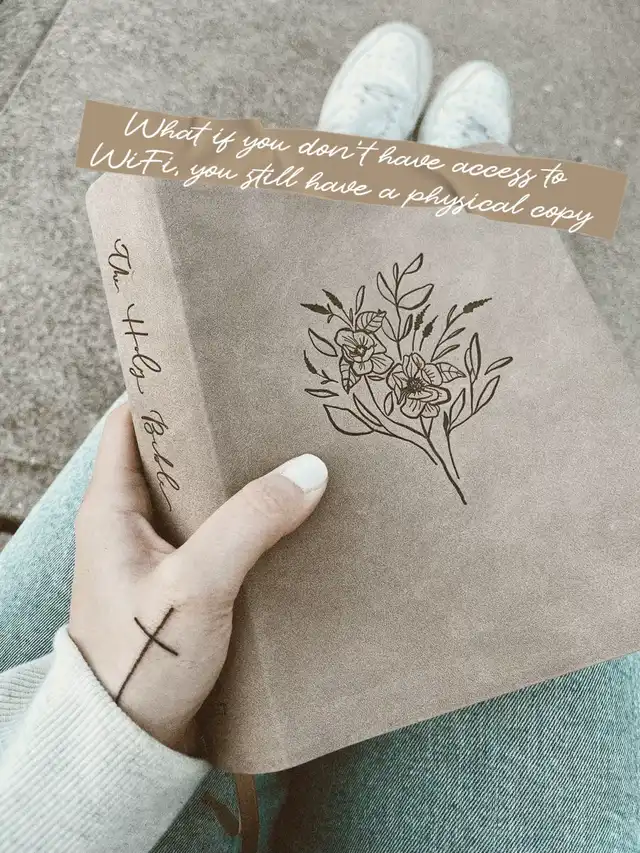 What if you don't have access to
WiFi, you still have a physical copy
The Holy Bible